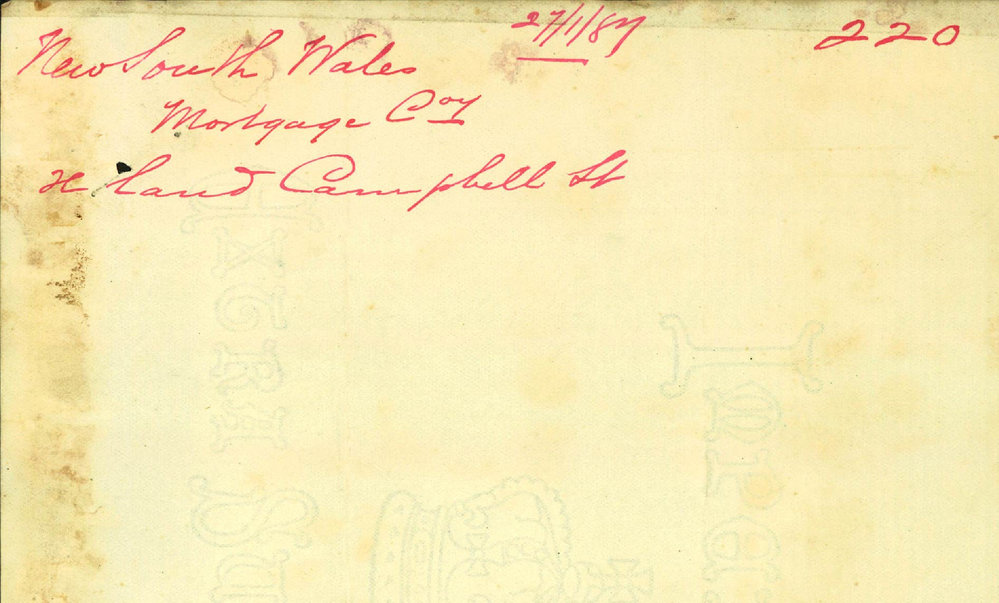 27/1/87
220
New South Wales
Mortgage Coy
re land Campbell St